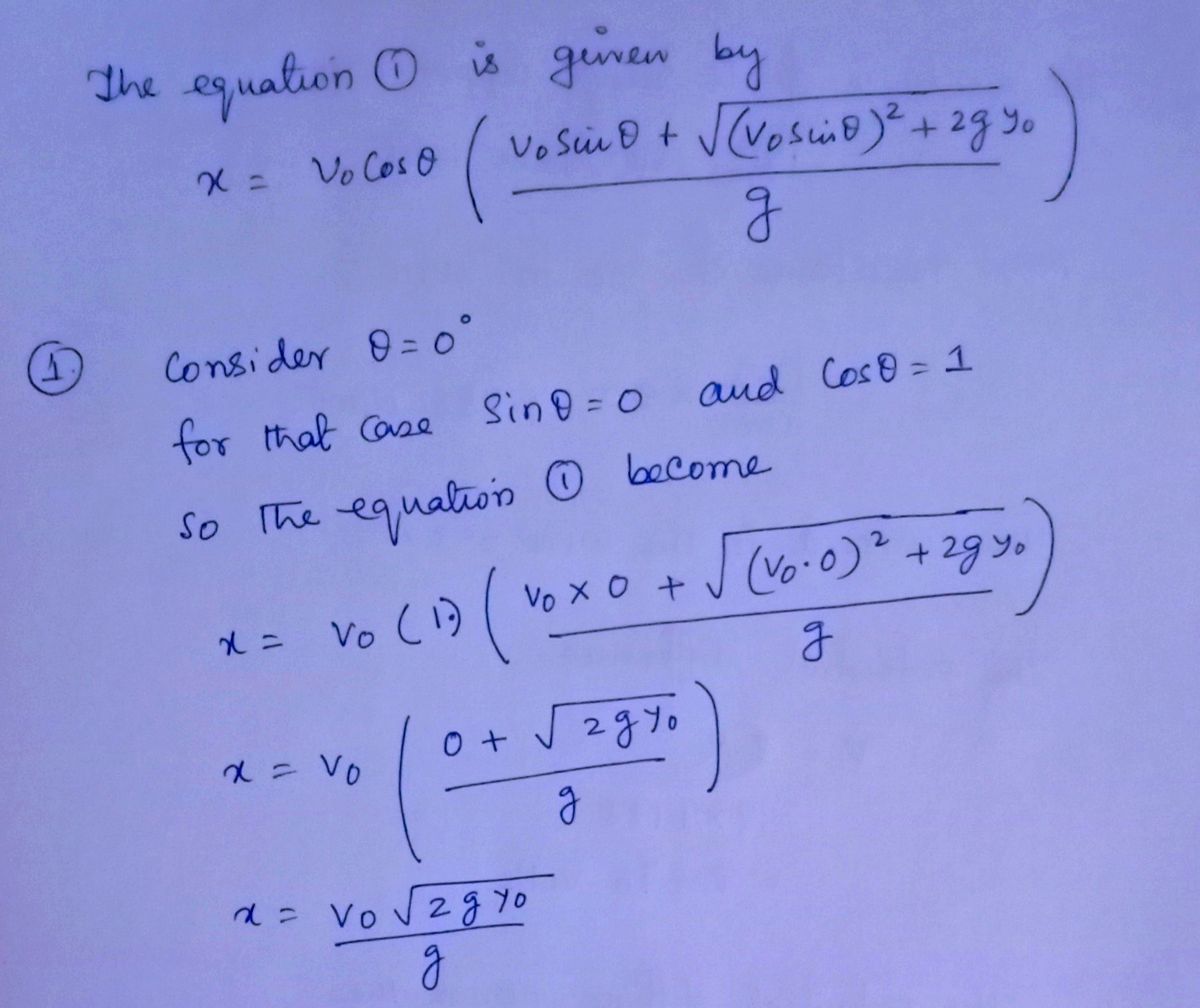 The equation ① is given by
x = V₀ Cosθ ( (V₀ Sinθ + √((V₀ sinθ)² + 2g y₀)) / g )
① Consider θ = 0°
for that case Sinθ = 0 and Cosθ = 1
so The equation ① become
x = V₀ (1) ( (V₀ × 0 + √((V₀·0)² + 2g y₀)) / g )
x = V₀ ( (0 + √(2g y₀)) / g )
x = V₀ √(2g y₀) / g